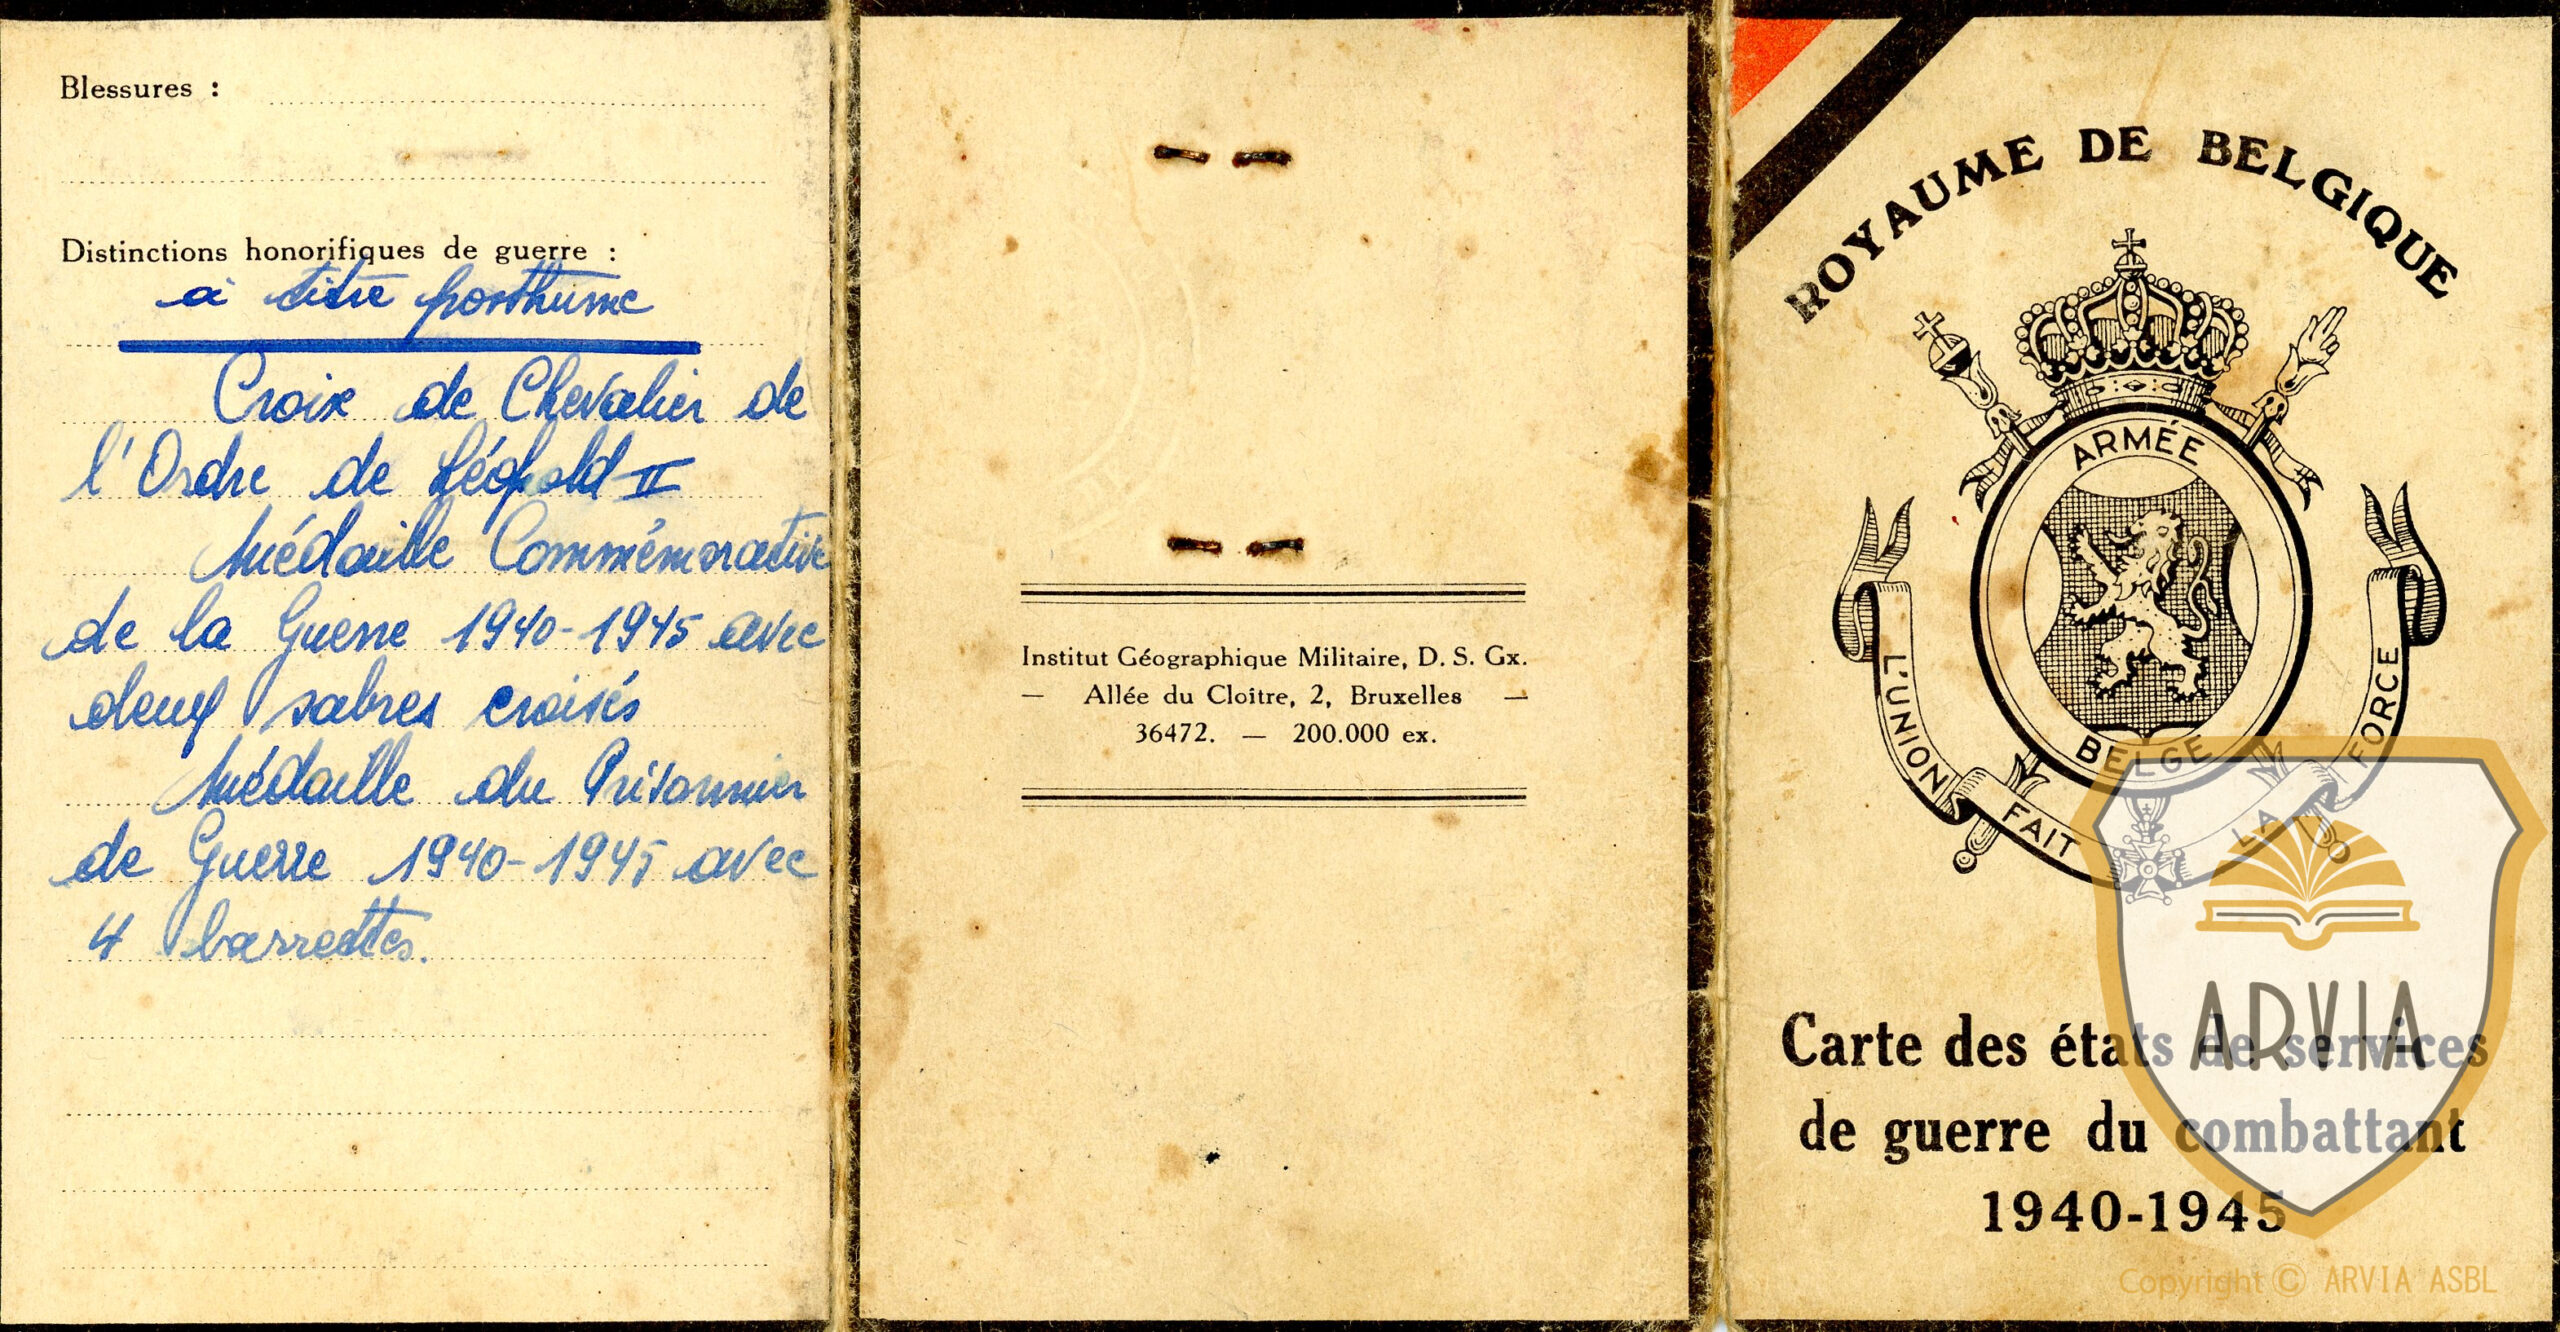 Blessures :
Distinctions honorifiques de guerre :
à titre posthume
Croix de Chevalier de
l'Ordre de Léopold II
Médaille Commémorative
de la Guerre 1940-1945 avec
deux sabres croisés
Médaille du Prisonnier
de Guerre 1940-1945 avec
4 barrettes.
Institut Géographique Militaire, D. S. Gx.
— Allée du Cloître, 2, Bruxelles —
36472. — 200.000 ex.
ROYAUME DE BELGIQUE
ARMÉE
BELGE
L'UNION FAIT LA FORCE
Carte des états de services
de guerre du combattant
1940-1945
ARVIA
Copyright © ARVIA ASBL